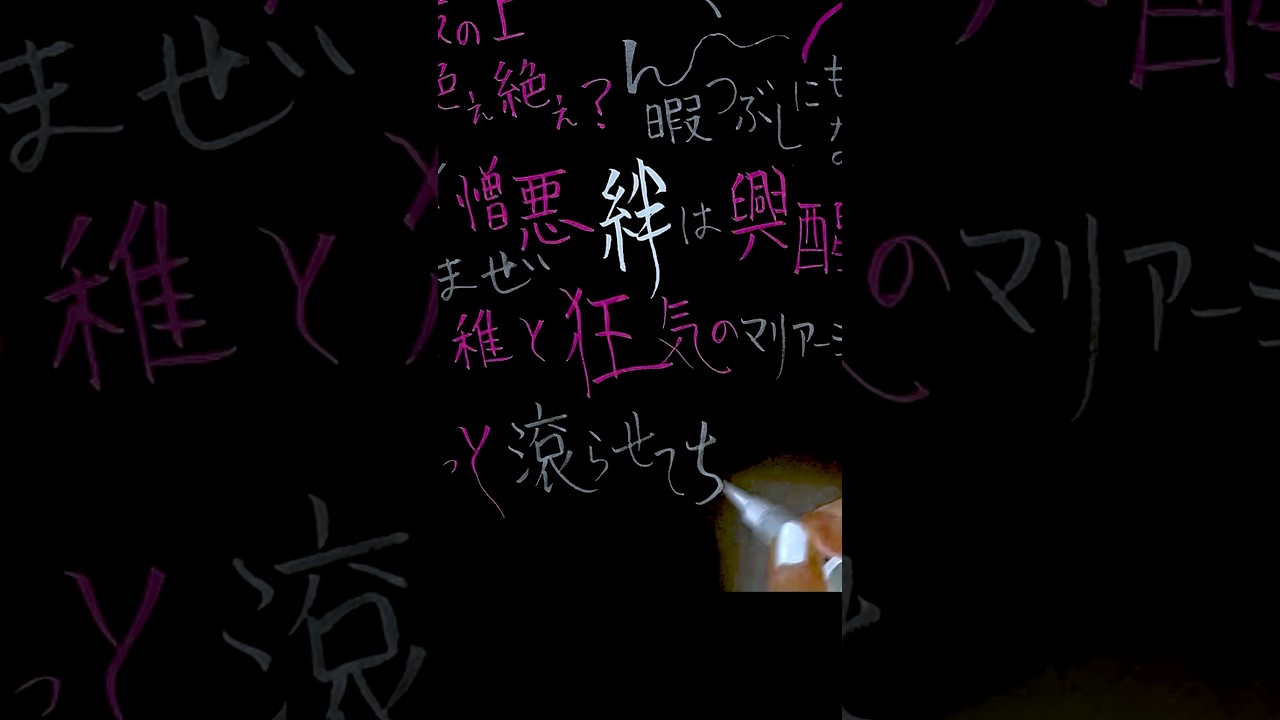 えの上
色え絶え?
ん
暇つぶしにも
な
憎悪 絆は興醒
まぜ
稚と狂気のマリアージ
っと滾らせてち